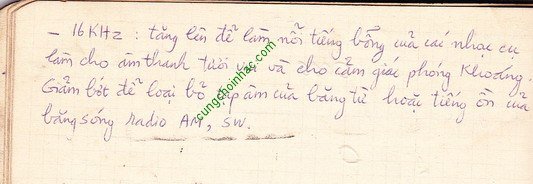 - 16 KHz : tăng lên để làm nỗi tiếng bổng của các nhạc cụ
làm cho âm thanh tươi và cho cảm giác phóng khoáng.
Giảm bớt để loại bỏ tạp âm của băng từ hoặc tiếng ồn của
băng sóng radio AM, SW.
cungchoinhac.com